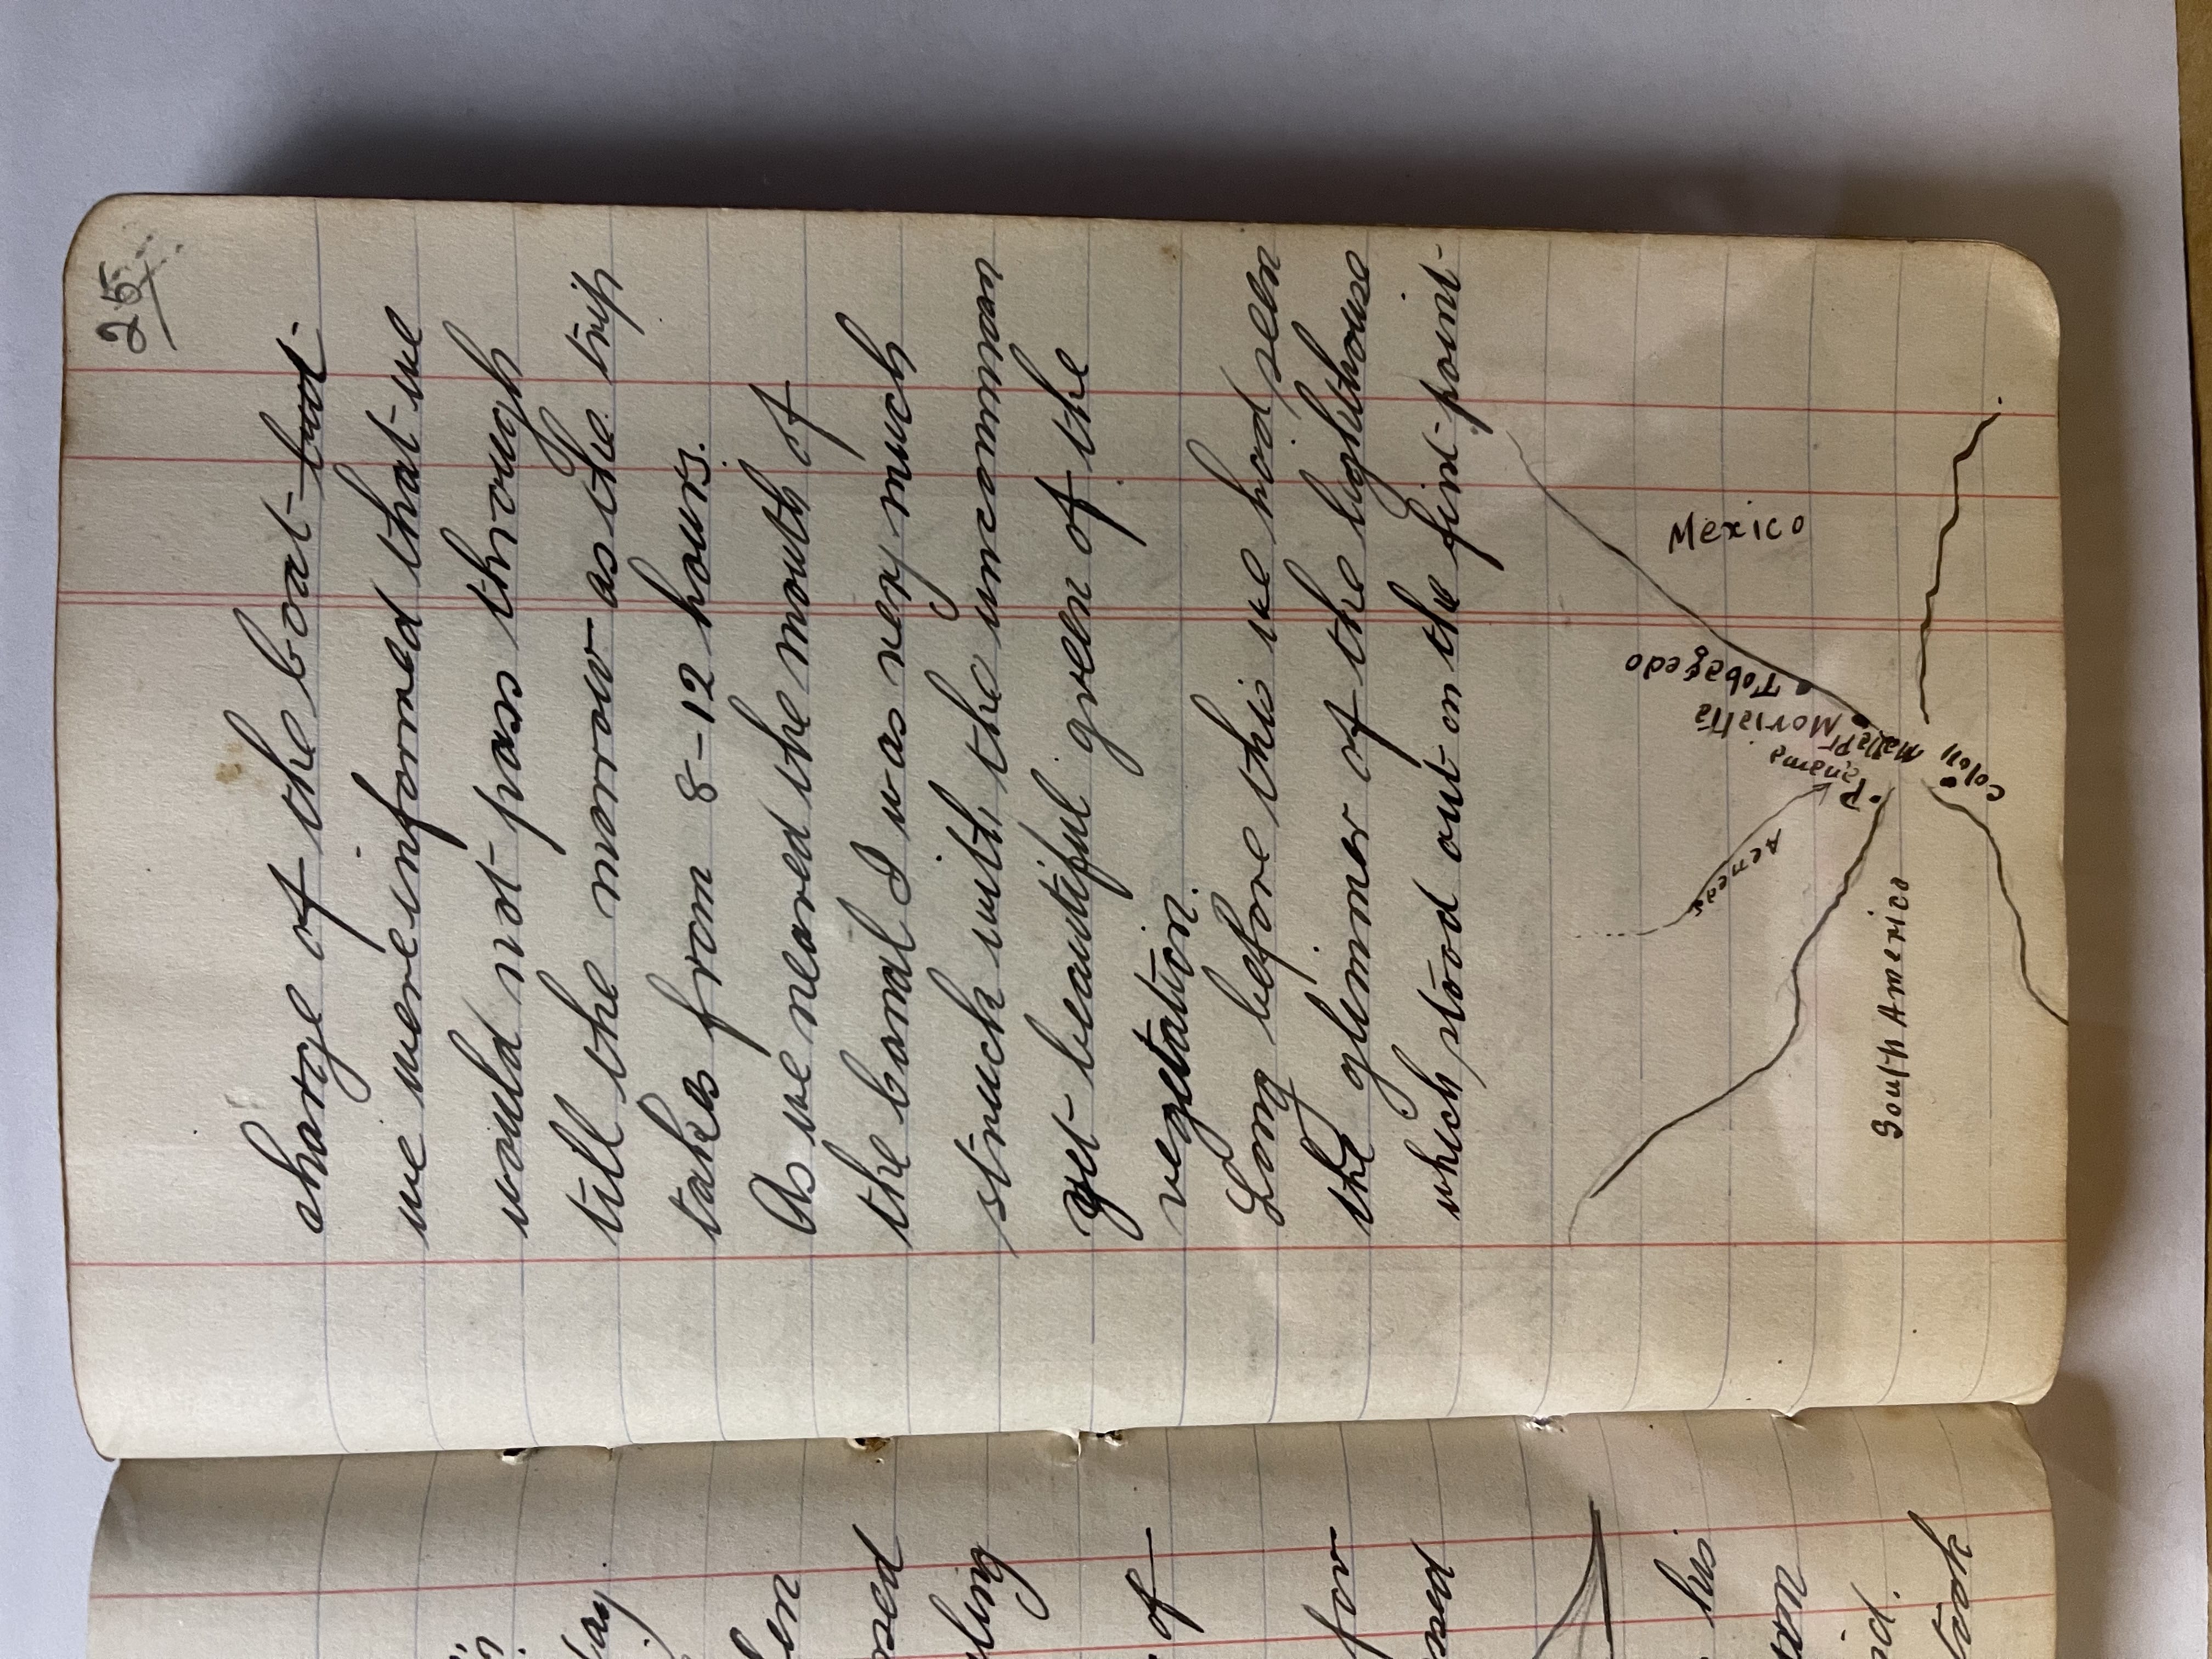 25
charge of the boat but
we were informed that we
would not pass through
till the morrow as the trip
takes from 8-12 hours.
As we neared the mouth of
the Canal I was very much
struck with the uncommon
yet beautiful green of the
vegetation.
Long before this we had seen
the glimmer of the lighthouse
which stood out on the first point
Mexico
Tobagedo
Panama
Colon
South America
day
of
for
his
took